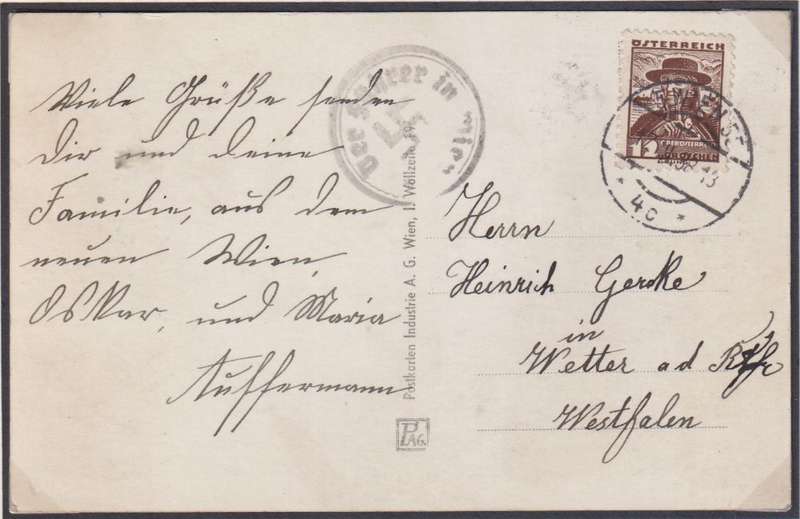 Viele Grüße senden
Dir und deine
Familie, aus dem
neuen Wien,
Oskar, und Maria
Auffermann
Der Führer in Wien
Postkarten Industrie A. G. Wien, I. Wollzeile
PAG.
ÖSTERREICH
12
OBERÖSTERR.
GROSCHEN
* 4c *
Herrn
Heinrich Gercke
in
Wetter a d Rhr
Westfalen